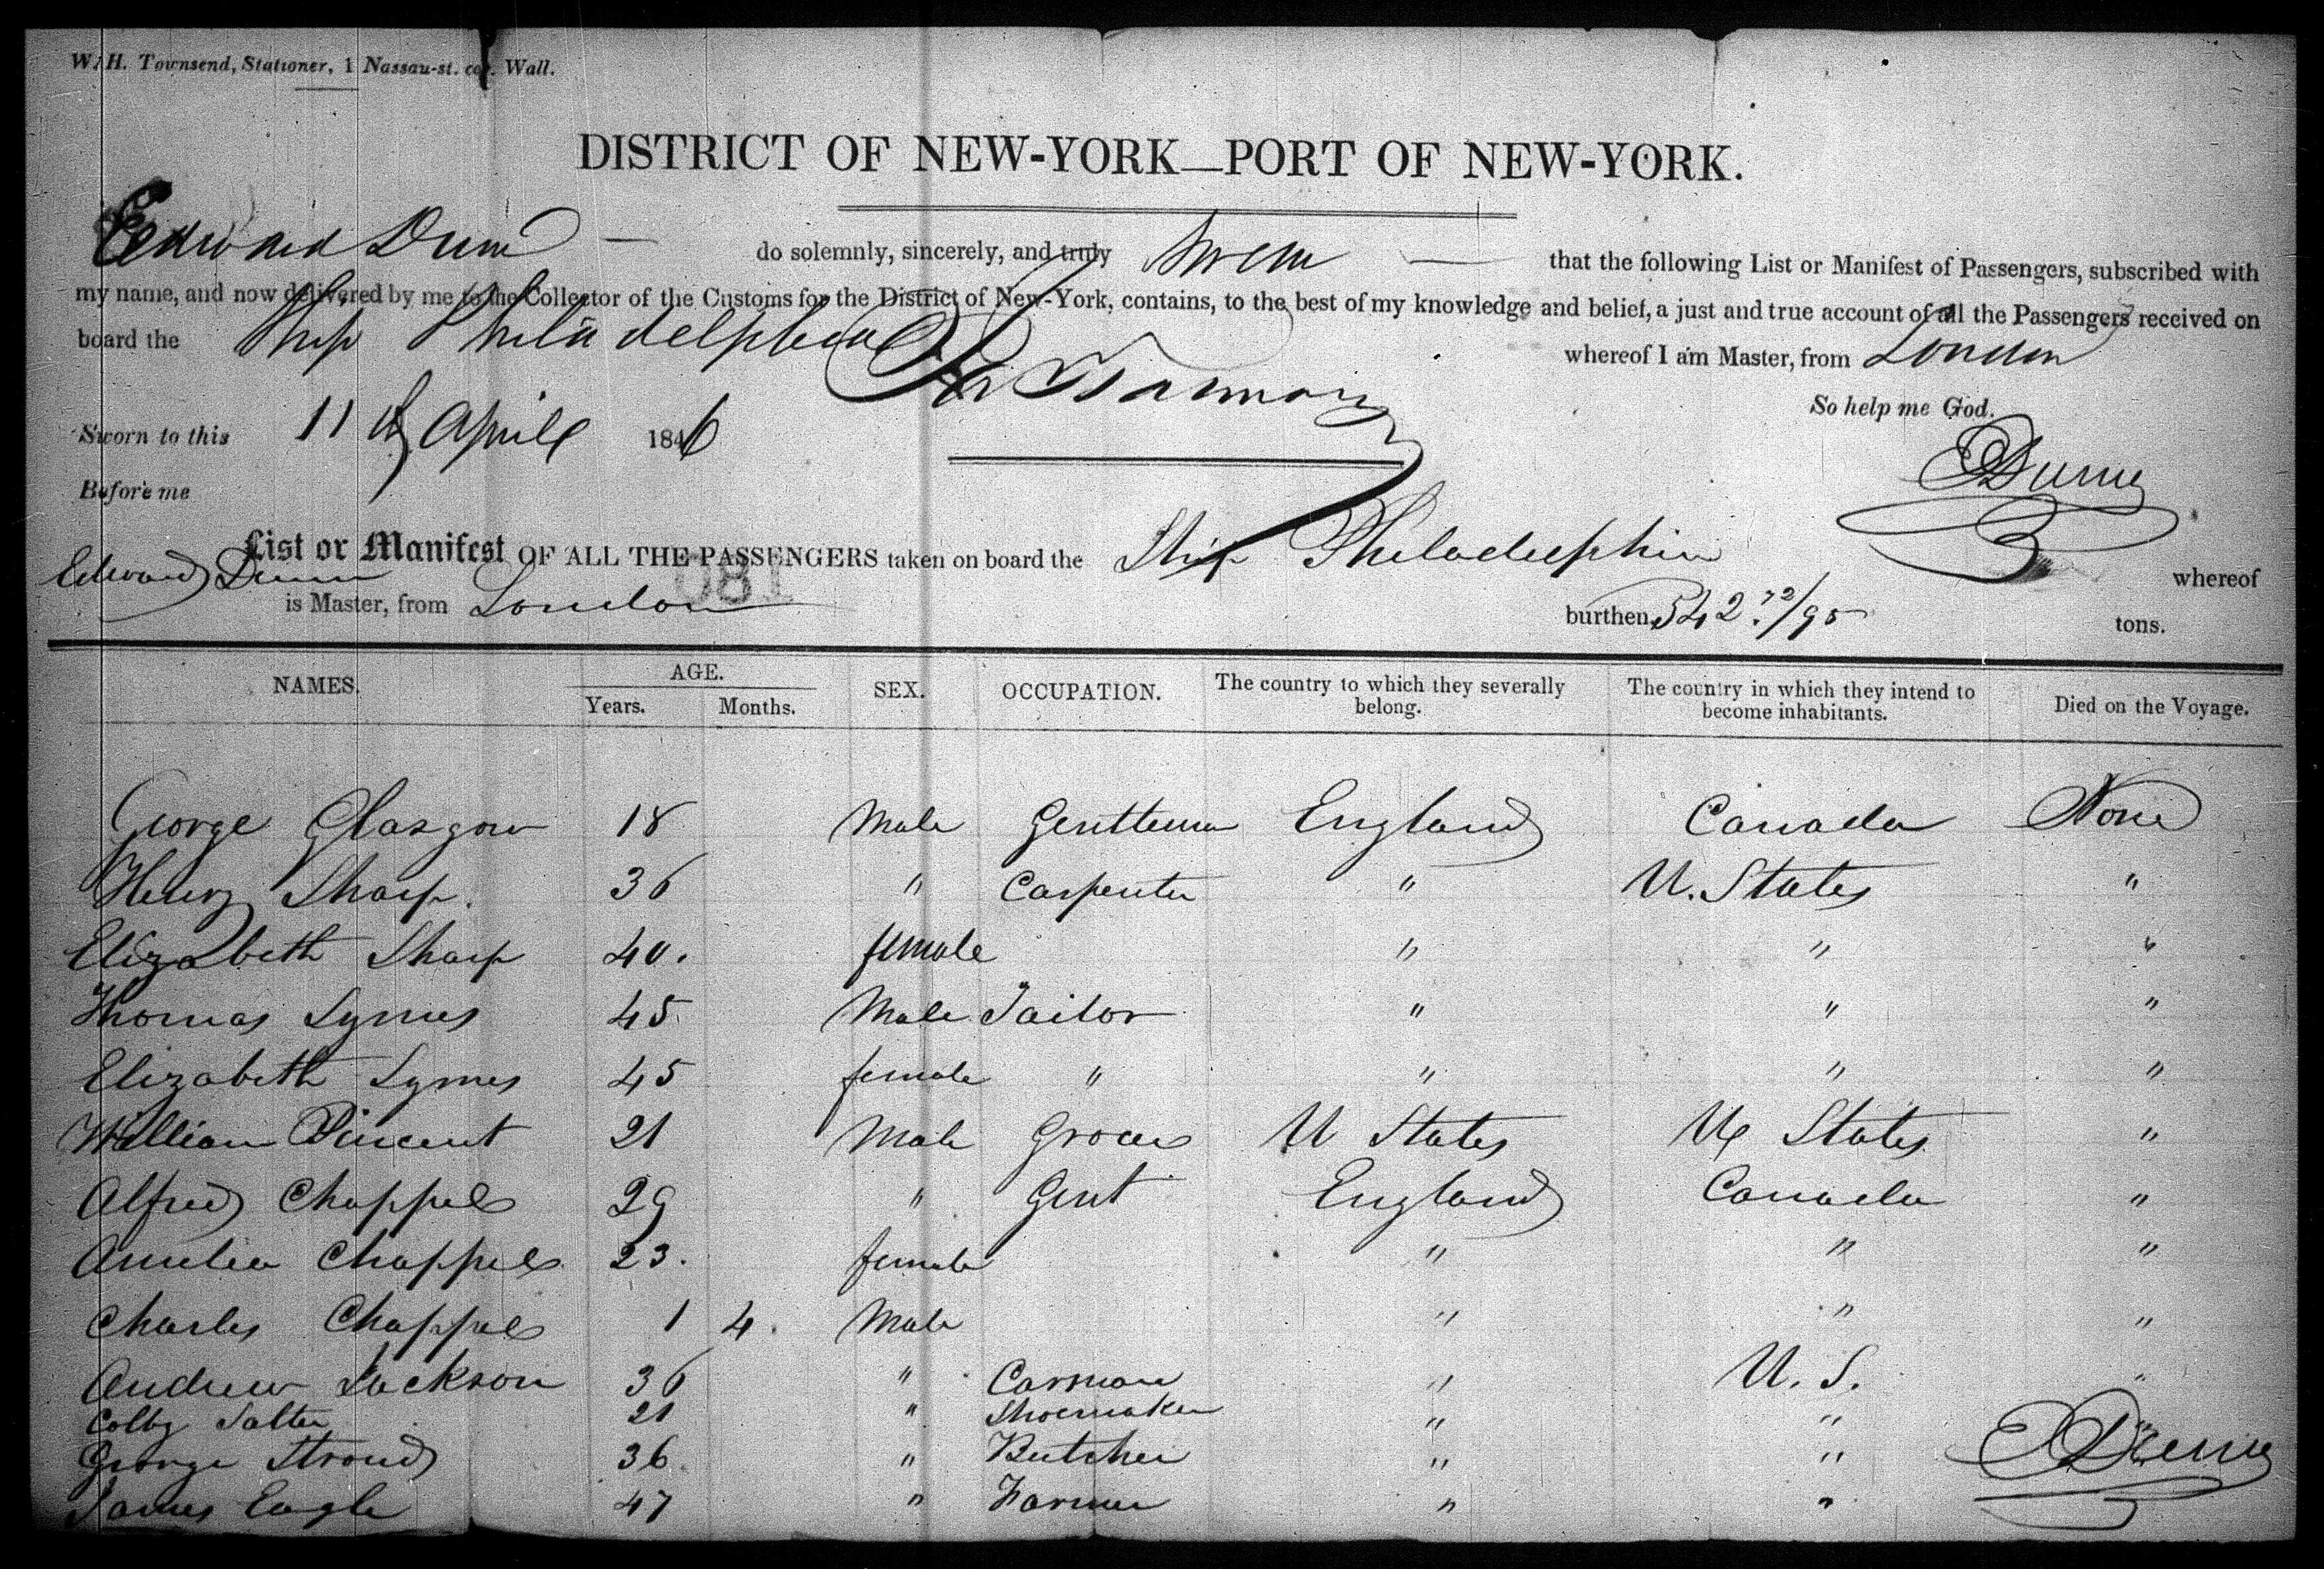 W. H. Townsend, Stationer, 1 Nassau-st. cor. Wall.
DISTRICT OF NEW-YORK—PORT OF NEW-YORK.
Edward Dunn do solemnly, sincerely, and truly Swear that the following List or Manifest of Passengers, subscribed with
my name, and now delivered by me to the Collector of the Customs for the District of New-York, contains, to the best of my knowledge and belief, a just and true account of all the Passengers received on
board the Ship Philadelphia whereof I am Master, from London
So help me God.
Sworn to this 11th April 1846
E Dunn
Before me
List or Manifest OF ALL THE PASSENGERS taken on board the Ship Philadelphia whereof
Edward Dunn is Master, from London burthen 542 72/95 tons.
081
NAMES. AGE. Years. Months. SEX. OCCUPATION. The country to which they severally belong. The country in which they intend to become inhabitants. Died on the Voyage.
George Glasgow 18 Male Gentleman England Canada None
Henry Sharp. 36 " Carpenter " U. States "
Elizabeth Sharp 40. female " " "
Thomas Symes 45 Male Tailor " " "
Elizabeth Symes 45 female " " " "
William Pincent 21 Male Grocer U States U States "
Alfred Chappel 29 " Gent England Canada "
Amelia Chappel 23. female " " "
Charles Chappel 1 4. Male " " "
Andrew Jackson 36 " Carman " U. S. "
Colby Salter 21 " Shoemaker " "
George Stroud 36 " Butcher " "
James Eagle 47 " Farmer " "
E Dunn